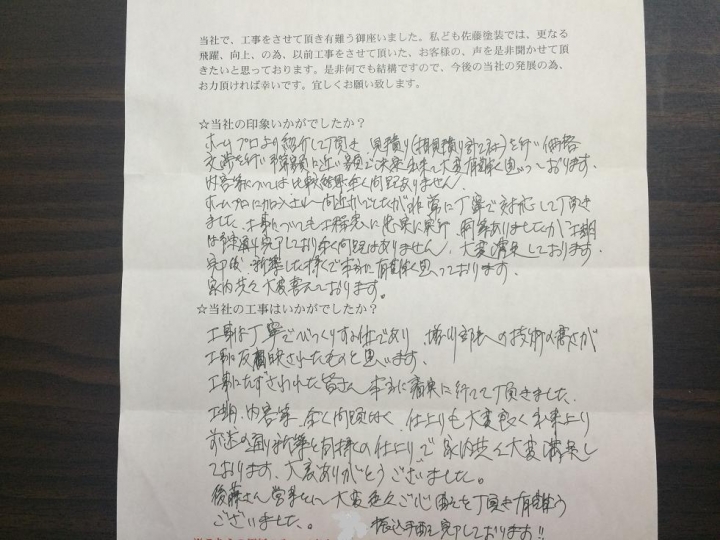 当社で、工事をさせて頂き有難う御座いました。私ども佐藤塗装では、更なる
飛躍、向上、の為、以前工事をさせて頂いた、お客様の、声を是非聞かせて頂
きたいと思っております。是非何でも結構ですので、今後の当社の発展の為、
お力頂ければ幸いです。宜しくお願い致します。
☆当社の印象いかがでしたか？
ホームプロより紹介して頂き 見積り(相見積り計2社)を行い価格
交渉を行い予算額に近い額で決定出来て大変有難く思っております。
内容等については比較結果全く問題ありません。
ホームプロに加入され間近かでしたが非常に丁寧で対応して頂き
ました。工事についても工程表に忠実に実行 雨等ありましたが工期
は予定通り完了しており全く問題はありません。大変満足しております。
完了後 新築した様で本当に有難く思っております。
家内共々大変喜んでおります。
☆当社の工事はいかがでしたか？
工事は丁寧でびっくりする仕事であり 技術の高さが
工事に反映されたものと思います。
工事にたずさわれた皆さん本当に確実に行って頂きました。
工期、内容等 全く問題なく 仕上りも大変良く出来上り
前述の通り新築と同様の仕上りで家内共々大変満足し
ております。大変ありがとうございました。
後藤さん 大変色々ご心配を頂き有難う
ございました。 振込手配も完了しております!!